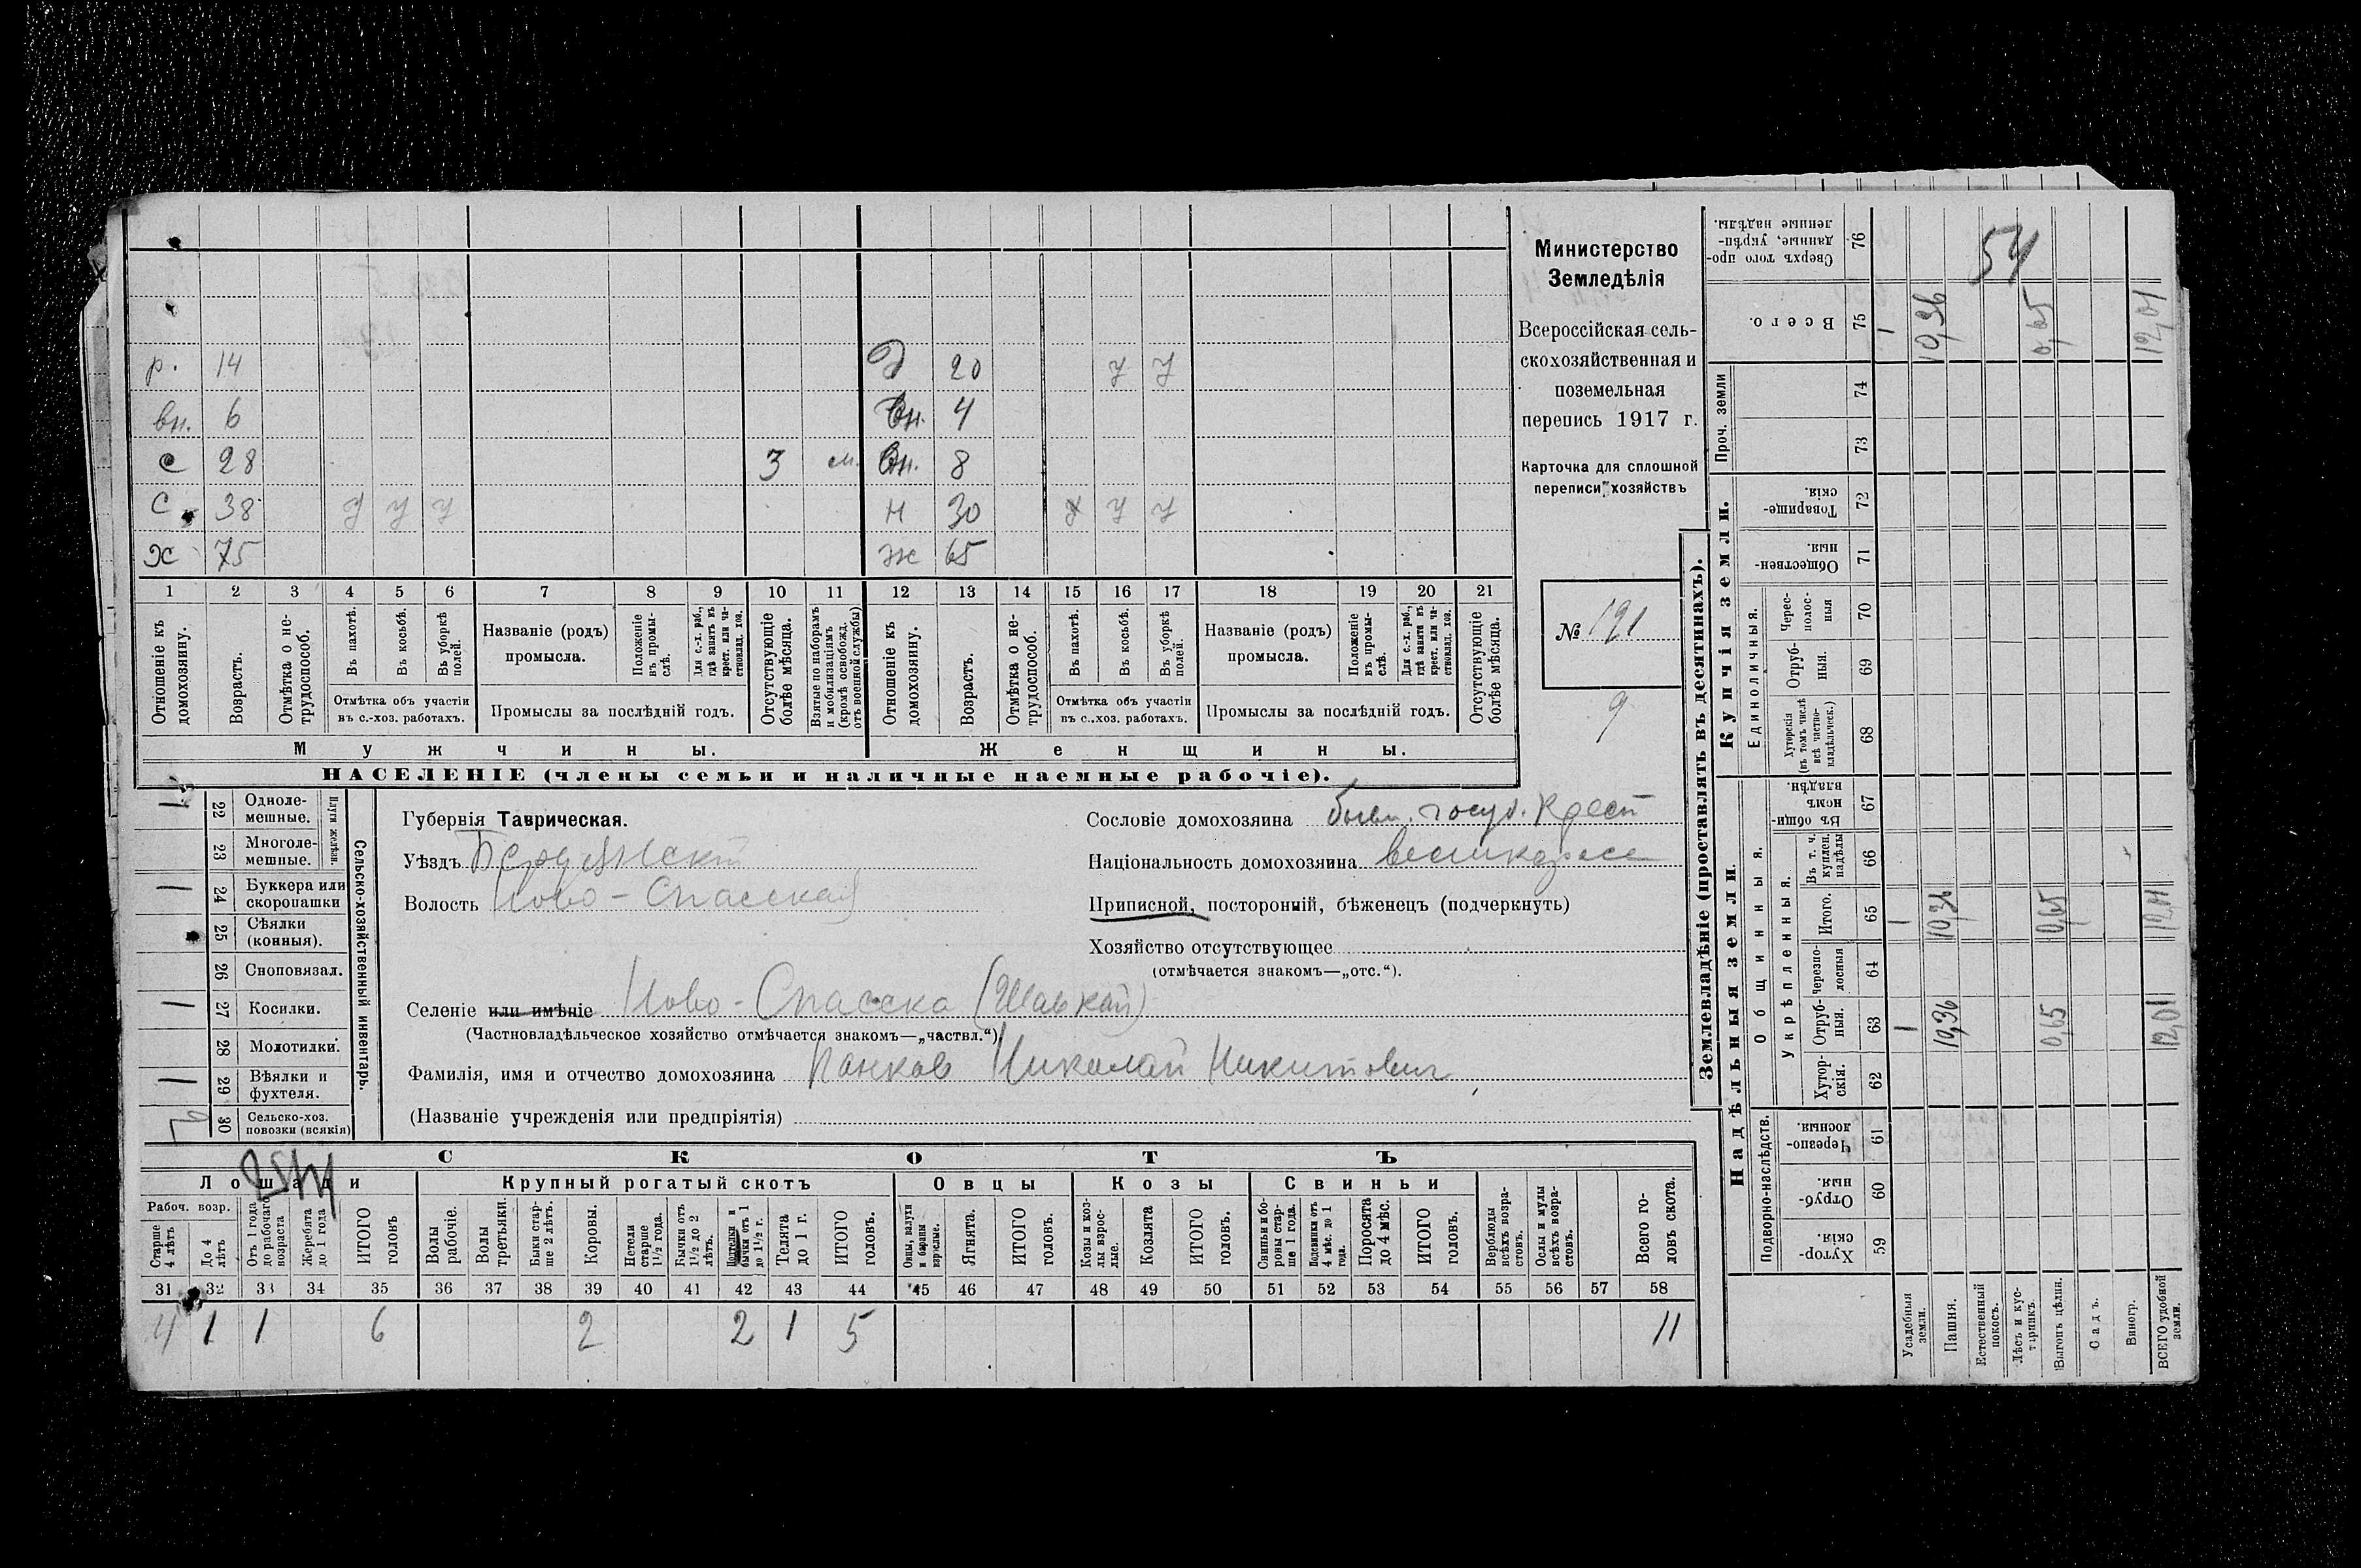 Министерство
Земледѣлія
Всероссійская сель-
скохозяйственная и
поземельная
перепись 1917 г.
Карточка для сплошной
переписи хозяйствъ
№ 121
9
р. 14
Д 20 У У
вн. 6
Вн. 4
С 28 3 м.
Вн. 8
С 38 У У У
Н 30 У У У
Х 75
Ж 65
1 2 3 4 5 6 7 8 9 10 11 12 13 14 15 16 17 18 19 20 21
Отношеніе къ домохозяину.
Возрастъ.
Отмѣтка о не-трудоспособ.
Въ пахотѣ.
Въ косьбѣ.
Въ уборкѣ полей.
Отмѣтка объ участіи
въ с.-хоз. работахъ.
Названіе (родъ)
промысла.
Положеніе въ промы-слѣ.
Для с.-х. раб., гдѣ занятъ въ крест. или ча-стновлад. хоз.
Промыслы за послѣдній годъ.
Отсутствующіе болѣе мѣсяца.
Взятые по наборамъ и мобилизаціямъ (кромѣ освобожд. отъ военной службы)
Отношеніе къ домохозяину.
Возрастъ.
Отмѣтка о не-трудоспособ.
Въ пахотѣ.
Въ косьбѣ.
Въ уборкѣ полей.
Отмѣтка объ участіи
въ с.-хоз. работахъ.
Названіе (родъ)
промысла.
Положеніе въ промы-слѣ.
Для с.-х. раб., гдѣ занята въ крест. или ча-стновлад. хоз.
Промыслы за послѣдній годъ.
Отсутствующіе болѣе мѣсяца.
Мужчины.
Женщины.
НАСЕЛЕНІЕ (члены семьи и наличные наемные рабочіе).
1 22 Одноле-мешные.
23 Многоле-мешные.
Плуги желѣзн.
1 24 Буккера или скоропашки
25 Сѣялки (конныя).
26 Сноповязал.
1 27 Косилки.
28 Молотилки.
1 29 Вѣялки и фухтеля.
30 Сельско-хоз. повозки (всякія)
Сельско-хозяйственный инвентарь.
Губернія Таврическая.
Уѣздъ Бердянскій
Волость Ново-Спасская
Селеніе или имѣніе Ново-Спасско (Шавкай)
(Частновладѣльческое хозяйство отмѣчается знакомъ—„частвл.“).
Фамилія, имя и отчество домохозяина Панков Николай Никитович
(Названіе учрежденія или предпріятія)
Сословіе домохозяина бывш. госуд. крест
Національность домохозяина великоросс
Приписной, посторонній, бѣженецъ (подчеркнуть)
Хозяйство отсутствующее
(отмѣчается знакомъ—„отс.“).
СКОТЪ
Лошади
Крупный рогатый скотъ
Овцы
Козы
Свиньи
Рабоч. возр.
Старше 4 лѣтъ
До 4 лѣтъ
Отъ 1 года до рабочаго возраста
Жеребята до 1 года
ИТОГО головъ
Волы рабочіе.
Волы третьяки.
Быки стар-ше 2 лѣтъ.
Коровы.
Нетели старше 1½ года.
Бычки отъ 1½ до 2 лѣтъ.
Нетелки и бычки отъ 1 до 1½ г.
Телята до 1 г.
ИТОГО головъ.
Овцы, валухи и бараны взрослые.
Ягнята.
ИТОГО головъ.
Козы и коз-лы взрос-лые.
Козлята
ИТОГО головъ.
Свиньи и бо-ровы стар-ше 1 года.
Подсвинки отъ 4 мѣс. до 1 года.
Поросята до 4 мѣс.
ИТОГО головъ.
Верблюды всѣхъ возра-стовъ.
Ослы и мулы всѣхъ возра-стовъ.
Всего го-ловъ скота.
31 32 33 34 35 36 37 38 39 40 41 42 43 44 45 46 47 48 49 50 51 52 53 54 55 56 57 58
4 1 1 6 2 2 1 5 11
Землевладѣніе (проставлять въ десятинахъ).
Надѣльныя земли.
Купчія земли.
Проч. земли
Подворно-наслѣдств.
Общинныя.
Укрѣпленныя.
Единоличныя.
54
Сверхъ того про-данные, укрѣп-ленные надѣлы. 76
Всего. 75 1 10,36 0,65 12,01
74
73
Товарище-скія. 72
Обществен-ныя. 71
Черес-полос-ныя 70
Отруб-ныя. 69
Хуторскія (въ томъ числѣ всѣ частно-владѣльческ.) 68
Въ общин-номъ владѣн. 67
Въ т. ч. куплен. надѣлы 66
Итого. 65 1 10,36 0,65 12,01
Черезпо-лосныя 64
Отруб-ныя. 63 1 10,36 0,65 12,01
Хутор-скія. 62
Черезпо-лосныя. 61
Отруб-ныя. 60
Хутор-скія. 59
Усадебныя земли.
Пашня.
Естественный покосъ.
Лѣсъ и кус-тарникъ.
Выгонъ цѣлин.
Садъ.
Виногр.
ВСЕГО удобной земли.